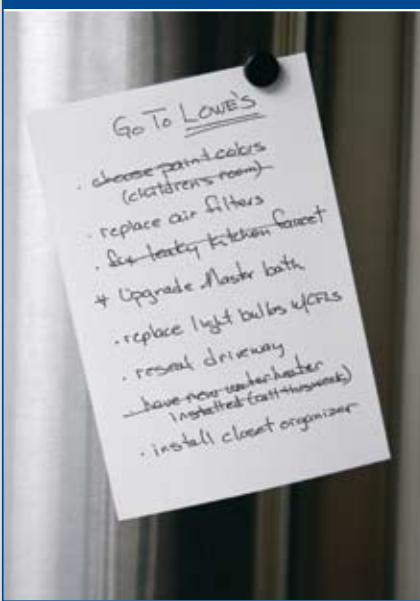 Go To Lowe's
· choose paint colors
(children's room)
· replace air filters
· fix leaky kitchen faucet
* Upgrade Master bath
· replace light bulbs w/CFLs
· reseal driveway
· have new water heater
installed (call this week)
· install closet organizer